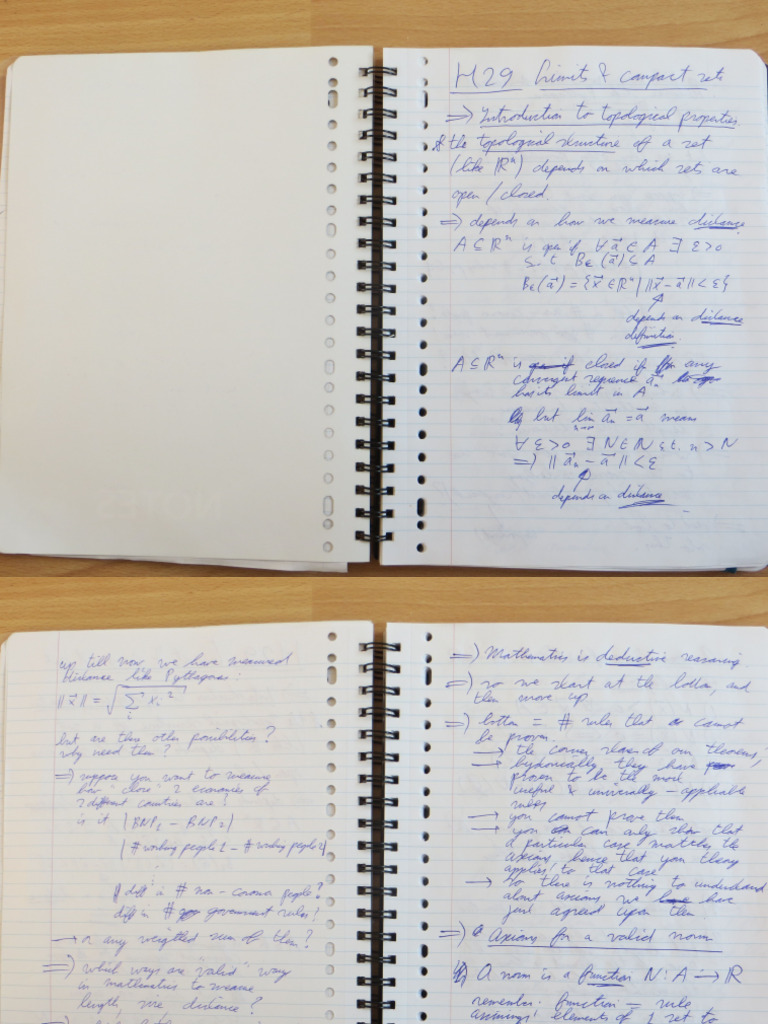 H29 Limits & compact sets
=> Introduction to topological properties
the topological structure of a set
(like ℝⁿ) depends on which sets are
open / closed.
=> depends on how we measure distance
A ⊆ ℝⁿ is open if ∀ a⃗ ∈ A ∃ ε>0
s.t Bε(a⃗) ⊆ A
Bε(a⃗) = {x⃗ ∈ ℝⁿ | ||x⃗ - a⃗|| < ε}
depends on distance
definition.
A ⊆ ℝⁿ is closed if any
convergent sequence a⃗ₙ
has its limit in A
but lim a⃗ₙ = a⃗ means
∀ ε>0 ∃ N ∈ ℕ s.t. n > N
=> || a⃗ₙ - a⃗ || < ε
depends on distance
up till now, we have measured
distance like Pythagoras:
||x⃗|| = √(∑ᵢ xᵢ²)
but are there other possibilities?
why need them?
=> suppose you want to measure
how "close" 2 economies of
2 different countries are?
is it |BNP₁ - BNP₂|
|# working people 1 - # working people 2|
diff in # non-corona people?
diff in # government rules?
-> or any weighted sum of them?
=> which ways are "valid" way
in mathematics to measure
length, size distance?
=> Mathematics is deductive reasoning.
=> so we start at the bottom, and
then move up
=> bottom = # rules that cannot
be proven.
-> the corner stones of our theorems,
-> hystorically they have
proven to be the most
useful & universally-applicable
rules
-> you cannot prove them
-> you can only show that
a particular case matches the
axioms, hence that your theory
applies to that case
-> so there is nothing to understand
about axioms we have
just "agreed" upon them.
=> Axioms for a valid norm
A norm is a function N: A -> ℝ
remember: function = rule
assigning elements of 1 set to